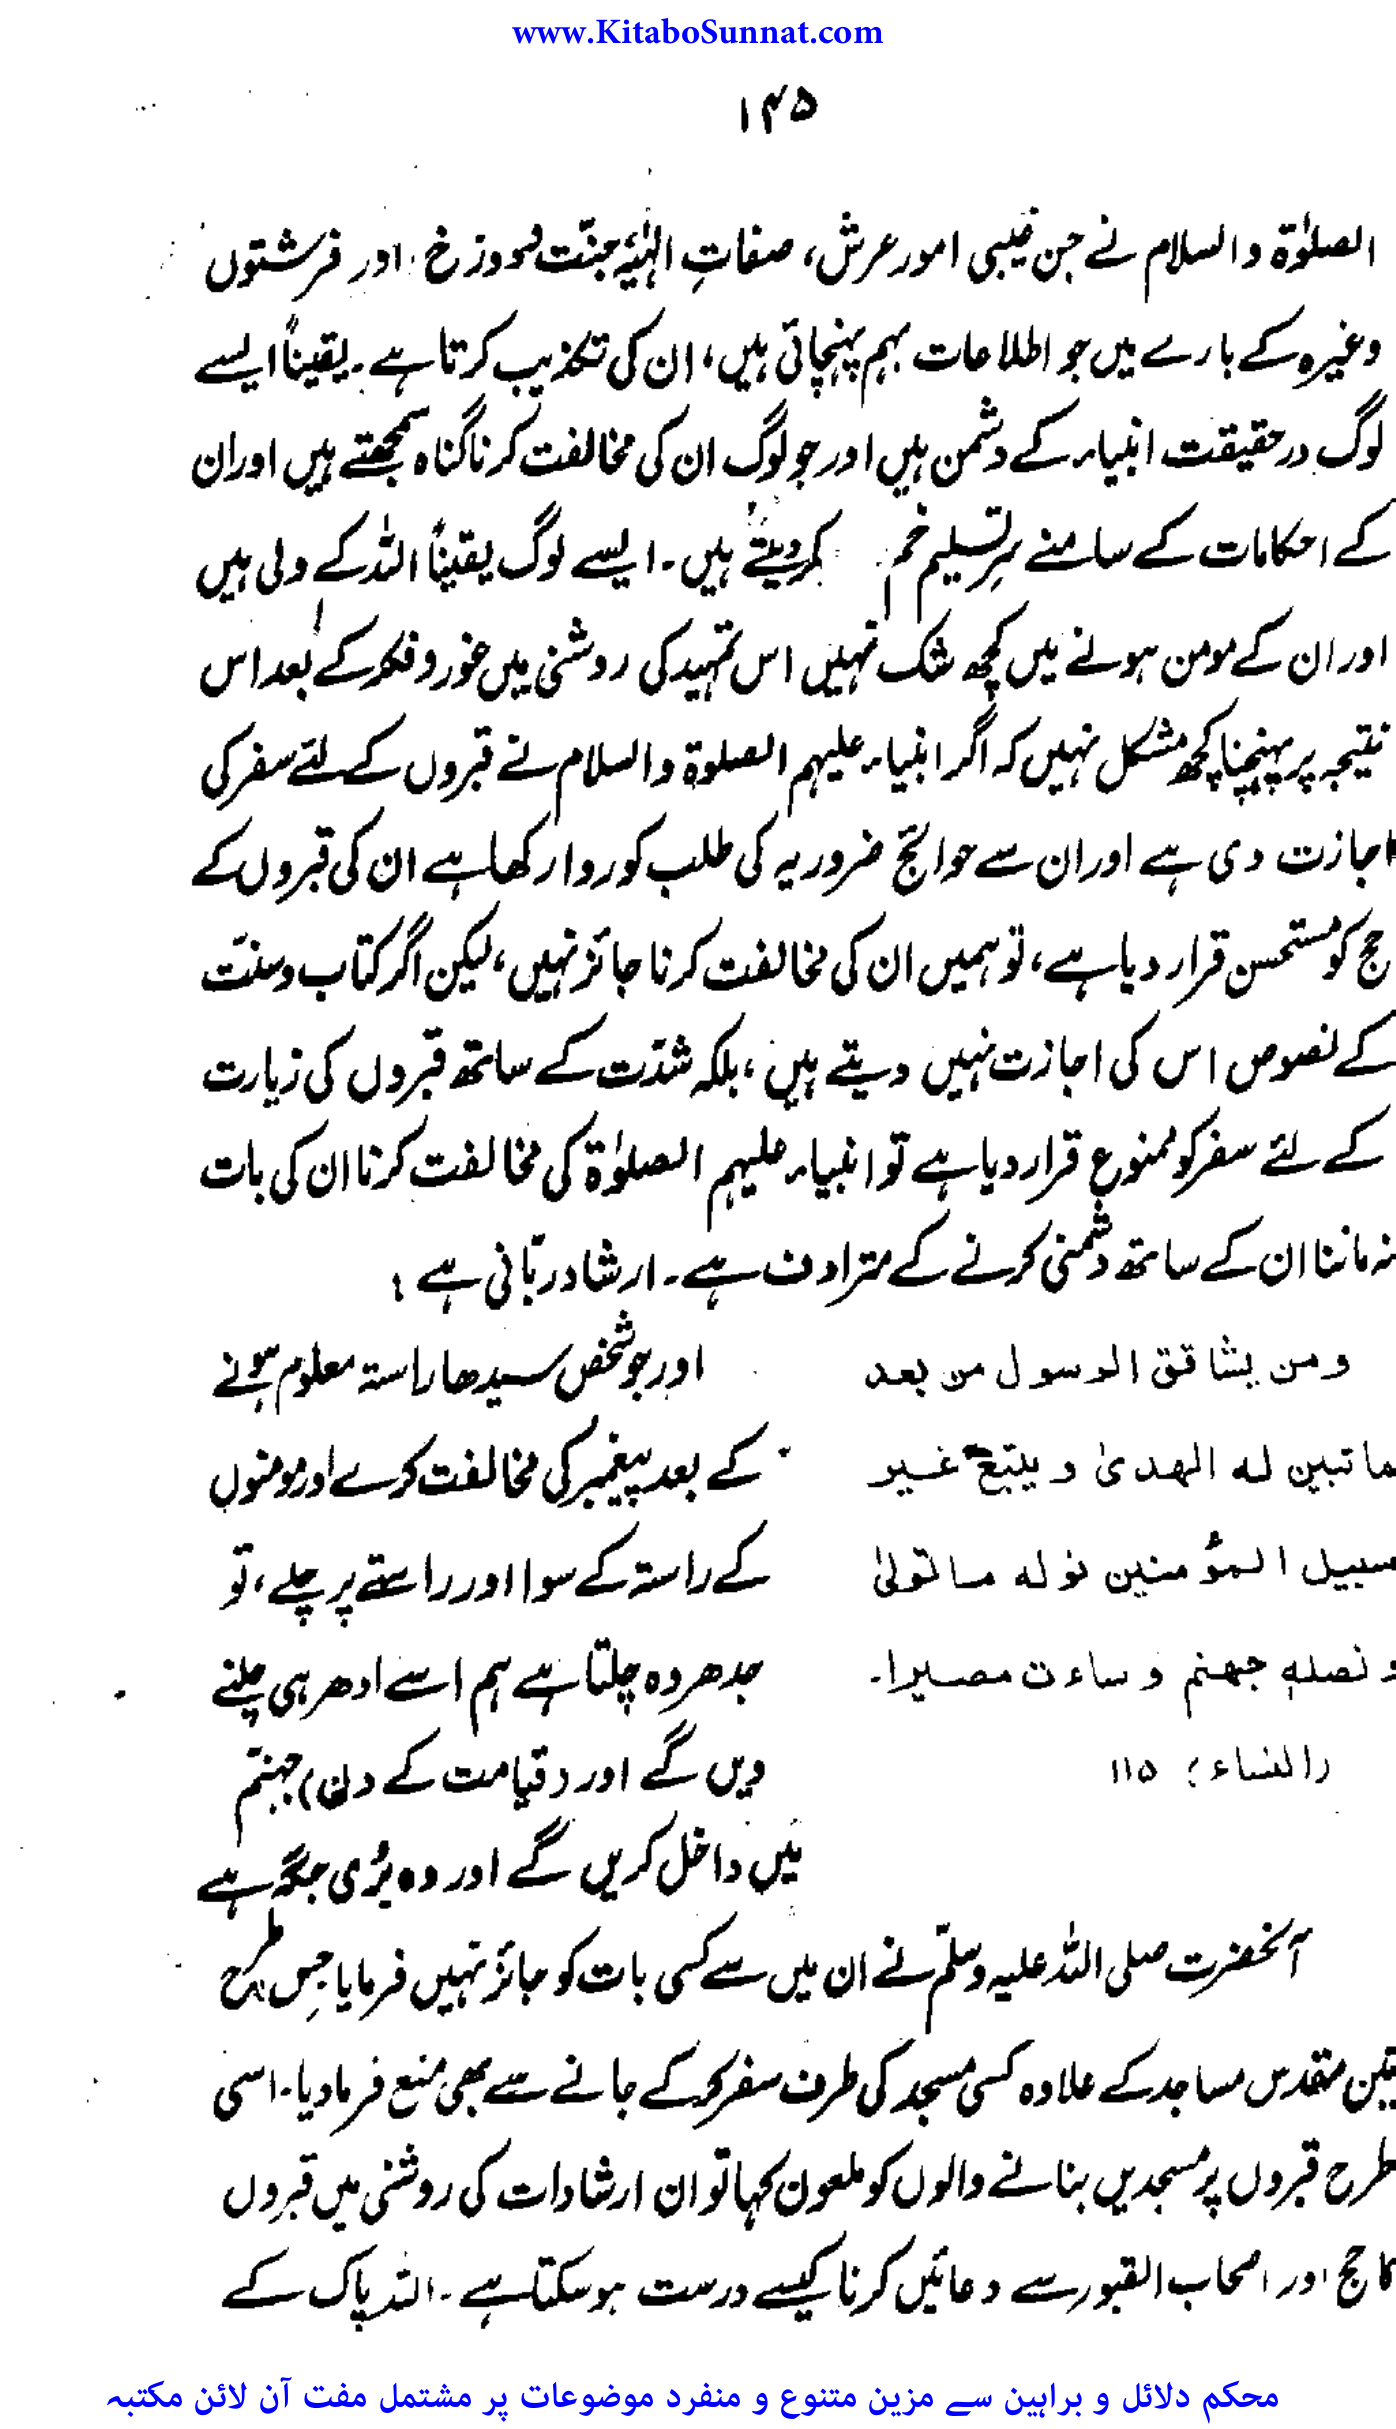 www.KitaboSunnat.com
۱۴۵
الصلوٰۃ والسلام نے جن غیبی امور عرش، صفاتِ الہٰیۂ جنّت و دوزخ، اور فرشتوں
وغیرہ کے بارے میں جو اطلاعات بہم پہنچائی ہیں، ان کی تکذیب کرتا ہے۔ یقیناً ایسے
لوگ درحقیقت انبیاء کے دشمن ہیں اور جو لوگ ان کی مخالفت کرنا گناہ سمجھتے ہیں اور ان
کے احکامات کے سامنے سرِ تسلیم خم کر دیتے ہیں۔ ایسے لوگ یقیناً اللہ کے ولی ہیں
اور ان کے مومن ہونے میں کچھ شک نہیں اس تمہید کی روشنی میں غور و فکر کے بعد اس
نتیجہ پر پہنچنا کچھ مشکل نہیں کہ اگر انبیاء علیہم الصلوۃ والسلام نے قبروں کے لئے سفر کی
اجازت دی ہے اور ان سے حوائج ضروریہ کی طلب کو روا رکھا ہے ان کی قبروں کے
حج کو مستحسن قرار دیا ہے، تو ہمیں ان کی مخالفت کرنا جائز نہیں، لیکن اگر کتاب و سنّت
کے نصوص اس کی اجازت نہیں دیتے ہیں، بلکہ شدّت کے ساتھ قبروں کی زیارت
کے لئے سفر کو ممنوع قرار دیا ہے تو انبیاء علیہم الصلوٰۃ کی مخالفت کرنا ان کی بات
نہ ماننا ان کے ساتھ دشمنی کرنے کے مترادف ہے۔ ارشاد ربّانی ہے :
ومن یشاقق الرسول من بعد
ما تبین له الهدیٰ و یتبع غیر
سبیل المؤمنین نوله ما تولیٰ
و نصله جهنم و ساءت مصیرا۔
(النساء؛ ۱۱۵
اور جو شخص سیدھا راستہ معلوم ہونے
کے بعد پیغمبر کی مخالفت کرے اور مومنوں
کے راستہ کے سوا اور راستے پر چلے، تو
جدھر وہ چلتا ہے ہم اسے ادھر ہی چلنے
دیں گے اور (قیامت کے دن) جہنّم
میں داخل کریں گے اور وہ بُری جگہ ہے
آنحضرت صلی اللہ علیہ وسلّم نے ان میں سے کسی بات کو جائز نہیں فرمایا جِس طرح
تین مقدس مساجد کے علاوہ کسی مسجد کی طرف سفر کر کے جانے سے بھی منع فرما دیا۔ اسی
طرح قبروں پر مسجدیں بنانے والوں کو ملعون کہا تو ان ارشادات کی روشنی میں قبروں
کا حج اور اصحاب القبور سے دعائیں کرنا کیسے درست ہو سکتا ہے۔ اللہ پاک کے
محکم دلائل و براہین سے مزین متنوع و منفرد موضوعات پر مشتمل مفت آن لائن مکتبہ